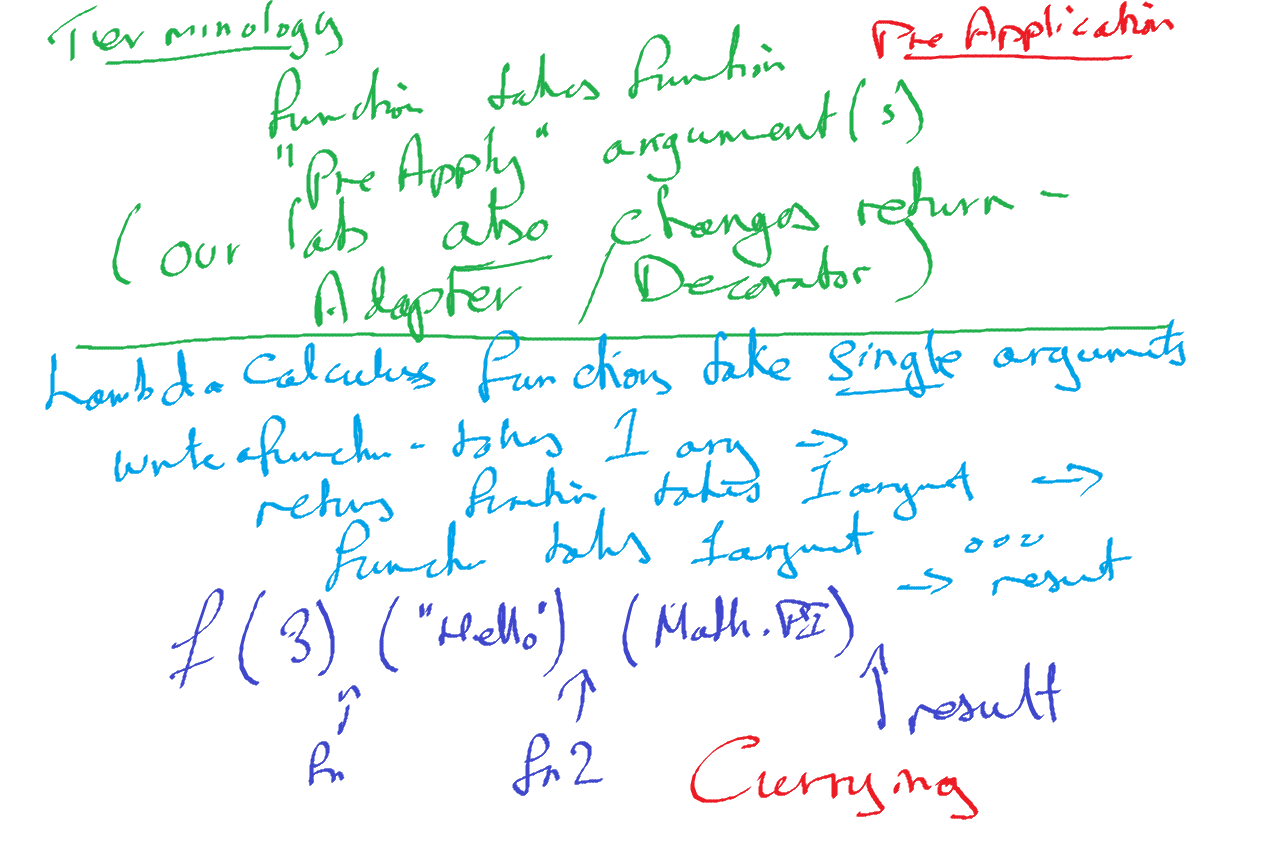 Terminology
Pre Application
function takes function
"Pre Apply" argument(s)
(our lab also changes return -
Adapter / Decorator)
Lambda Calculus functions take single arguments
write a function - takes 1 arg →
returns function takes 1 argument →
function takes 1 argument ooo
→ result
f(3) ("Hello") (Math.PI)
↑ ↑ ↑ result
fn fn2
Currying